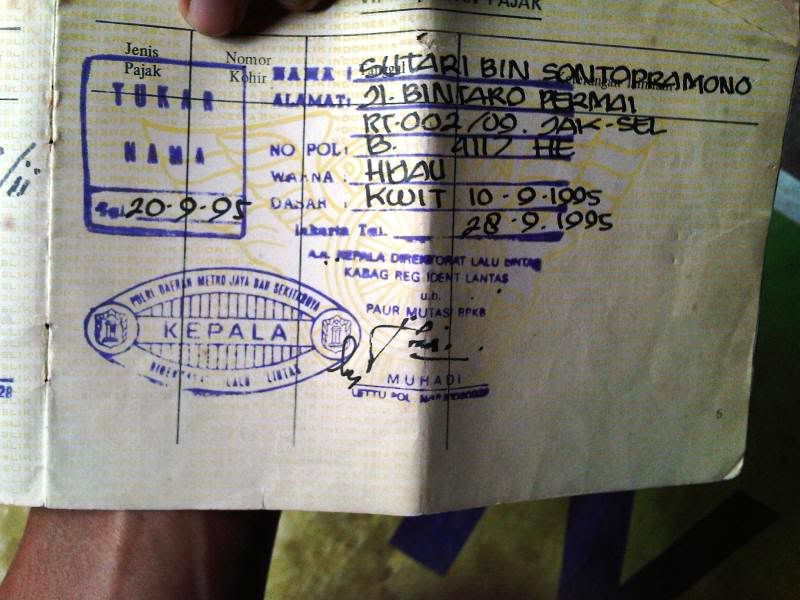 PAJAK
Jenis
Pajak
Nomor
Kohir
TUKAR
NAMA
Tgl. 20-9-95
NAMA : SUTARI BIN SONTOPRAMONO
ALAMAT: JL. BINTARO PERMAI
RT-002/09. JAK-SEL
NO POL: B. 4117 HE
WARNA : HIJAU
DASAR : KWIT 10-9-1995
Jakarta Tgl. 28-9-1995
A.N. KEPALA DIREKTORAT LALU LINTAS
KABAG REG IDENT LANTAS
u.b.
PAUR MUTASI BPKB
MUHADI
LETTU POL
POLRI DAERAH METRO JAYA DAN SEKITARNYA
KEPALA
LALU LINTAS
6
28